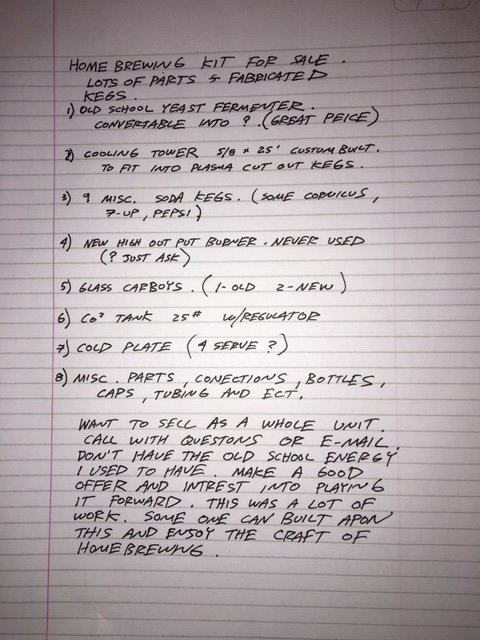 HOME BREWING KIT FOR SALE.
LOTS OF PARTS & FABRICATED
KEGS.
1) OLD SCHOOL YEAST FERMENTER.
CONVERTABLE INTO ? . (GREAT PEICE)
2) COOLING TOWER 5/8 x 25' CUSTOM BUILT.
TO FIT INTO PLASMA CUT OUT KEGS.
3) 9 MISC. SODA KEGS. (SOME CORNILUS,
7-UP, PEPSI)
4) NEW HIGH OUT PUT BURNER. NEVER USED
(? JUST ASK)
5) GLASS CARBOYS. (1-OLD 2-NEW)
6) CO² TANK 25# W/REGULATOR
7) COLD PLATE (4 SERVE ?)
8) MISC. PARTS, CONECTIONS, BOTTLES,
CAPS, TUBING AND ECT.
WANT TO SELL AS A WHOLE UNIT.
CALL WITH QUESTONS OR E-MAIL.
DON'T HAVE THE OLD SCHOOL ENERGY
I USED TO HAVE. MAKE A GOOD
OFFER AND INTREST INTO PLAYING
IT FORWARD. THIS WAS A LOT OF
WORK. SOME ONE CAN BUILT APON
THIS AND ENJOY THE CRAFT OF
HOMEBREWING.